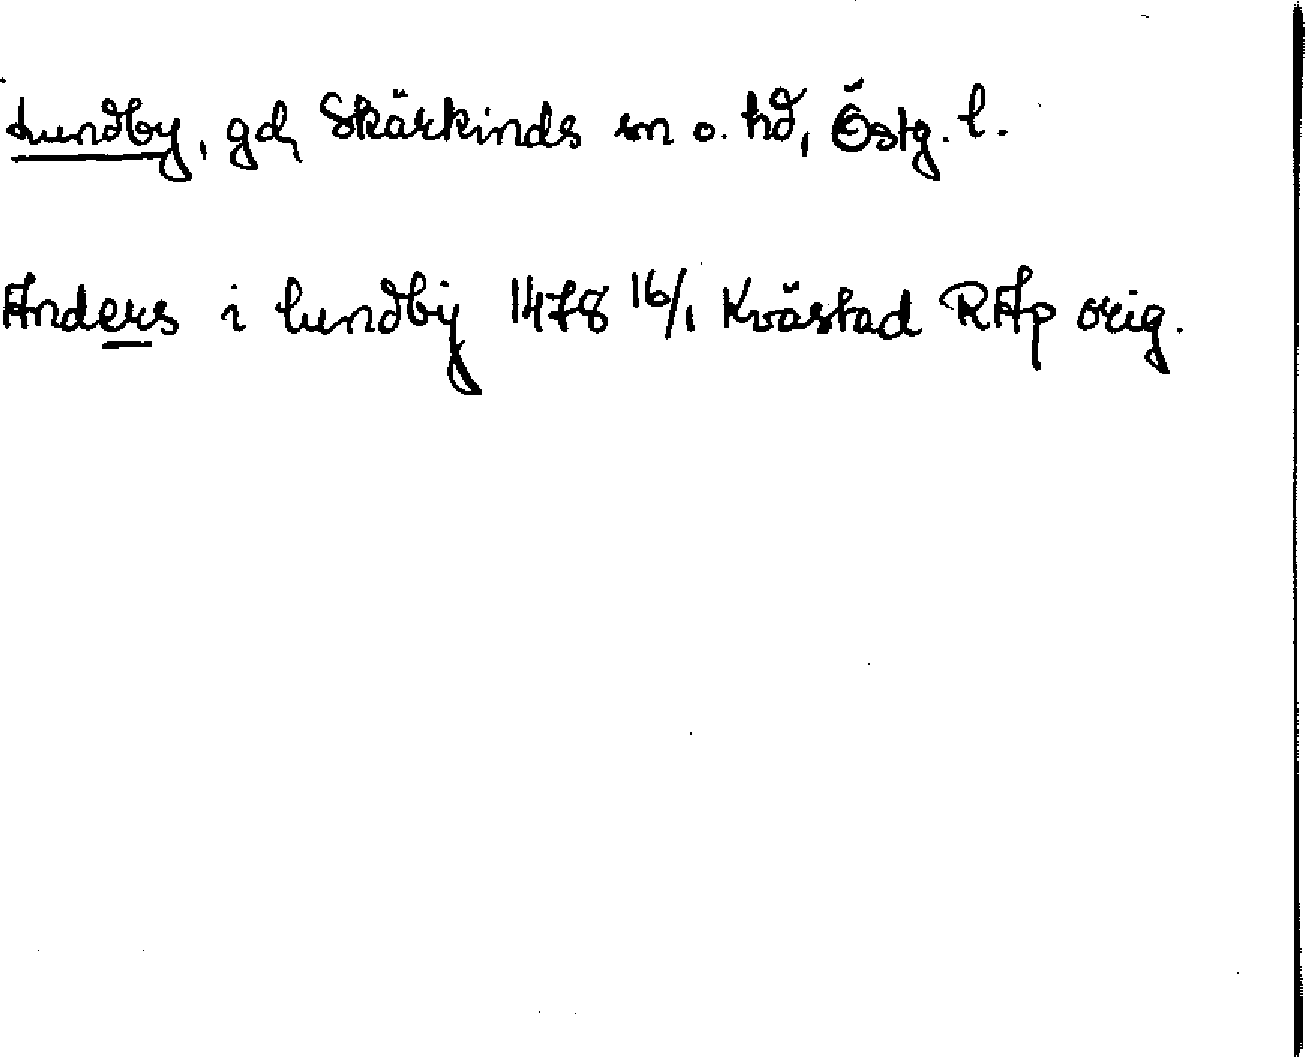 Lundby, gd, Skärkinds sn o. hd, Östg. l.
Anders i lundby 1478 16/1 Kvästad RAp orig.